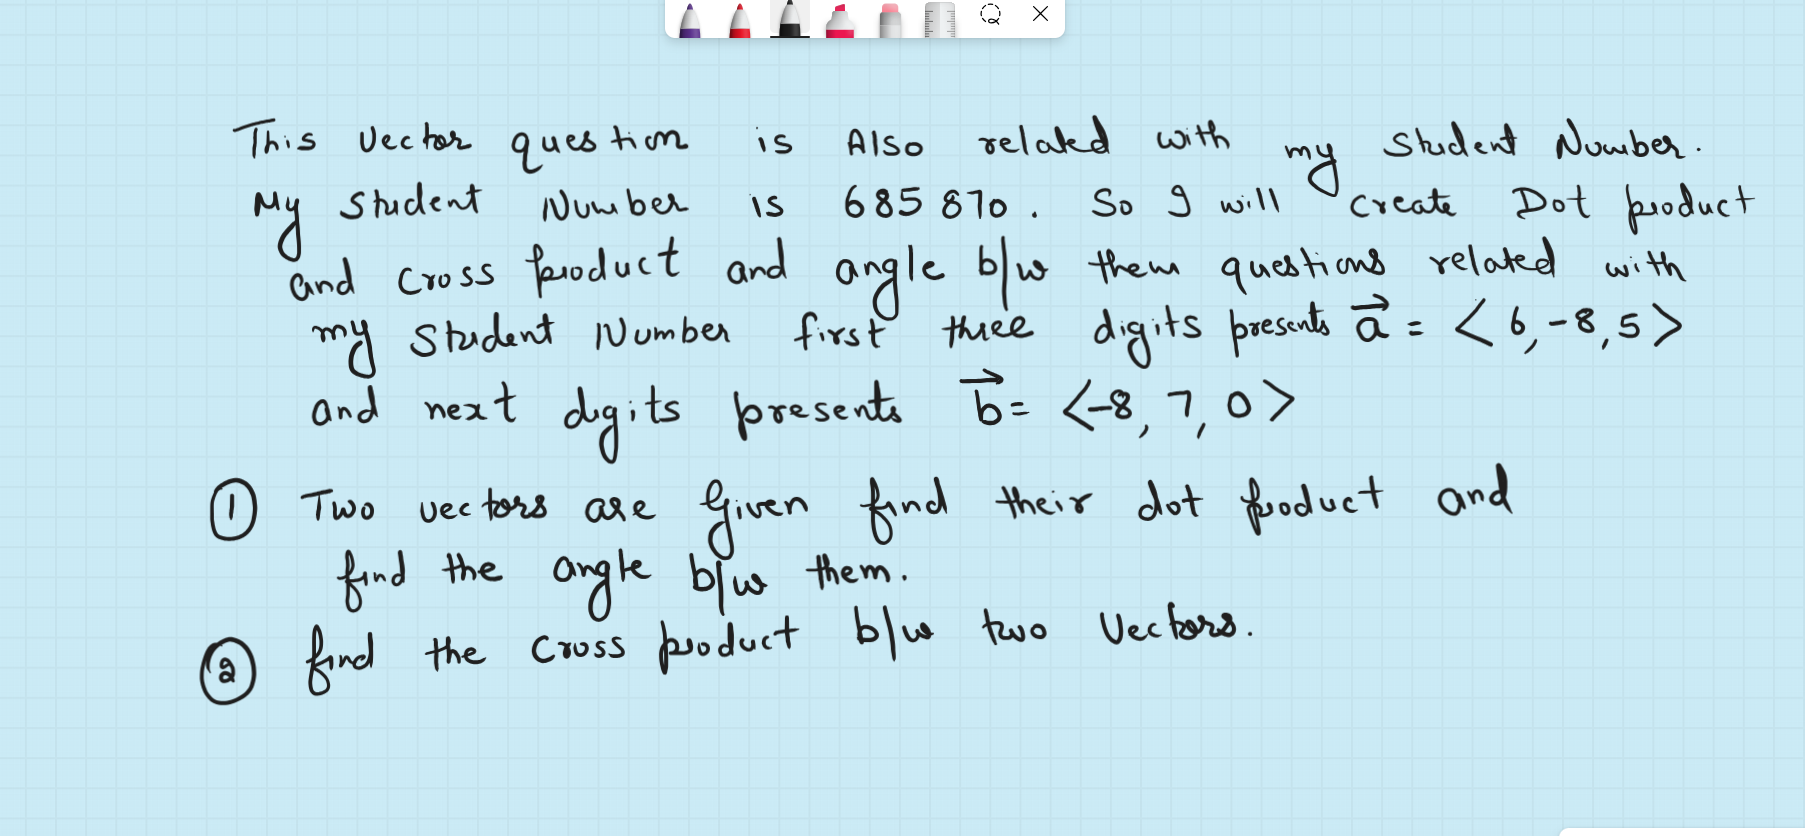 This Vector question is Also related with my Student Number.
My Student Number is 685870. So I will create Dot product
and Cross product and angle b/w them questions related with
my Student Number first three digits presents a⃗ = < 6, -8, 5 >
and next digits presents b⃗ = <-8, 7, 0 >
① Two vectors are given find their dot product and
find the angle b/w them.
② find the Cross product b/w two Vectors.